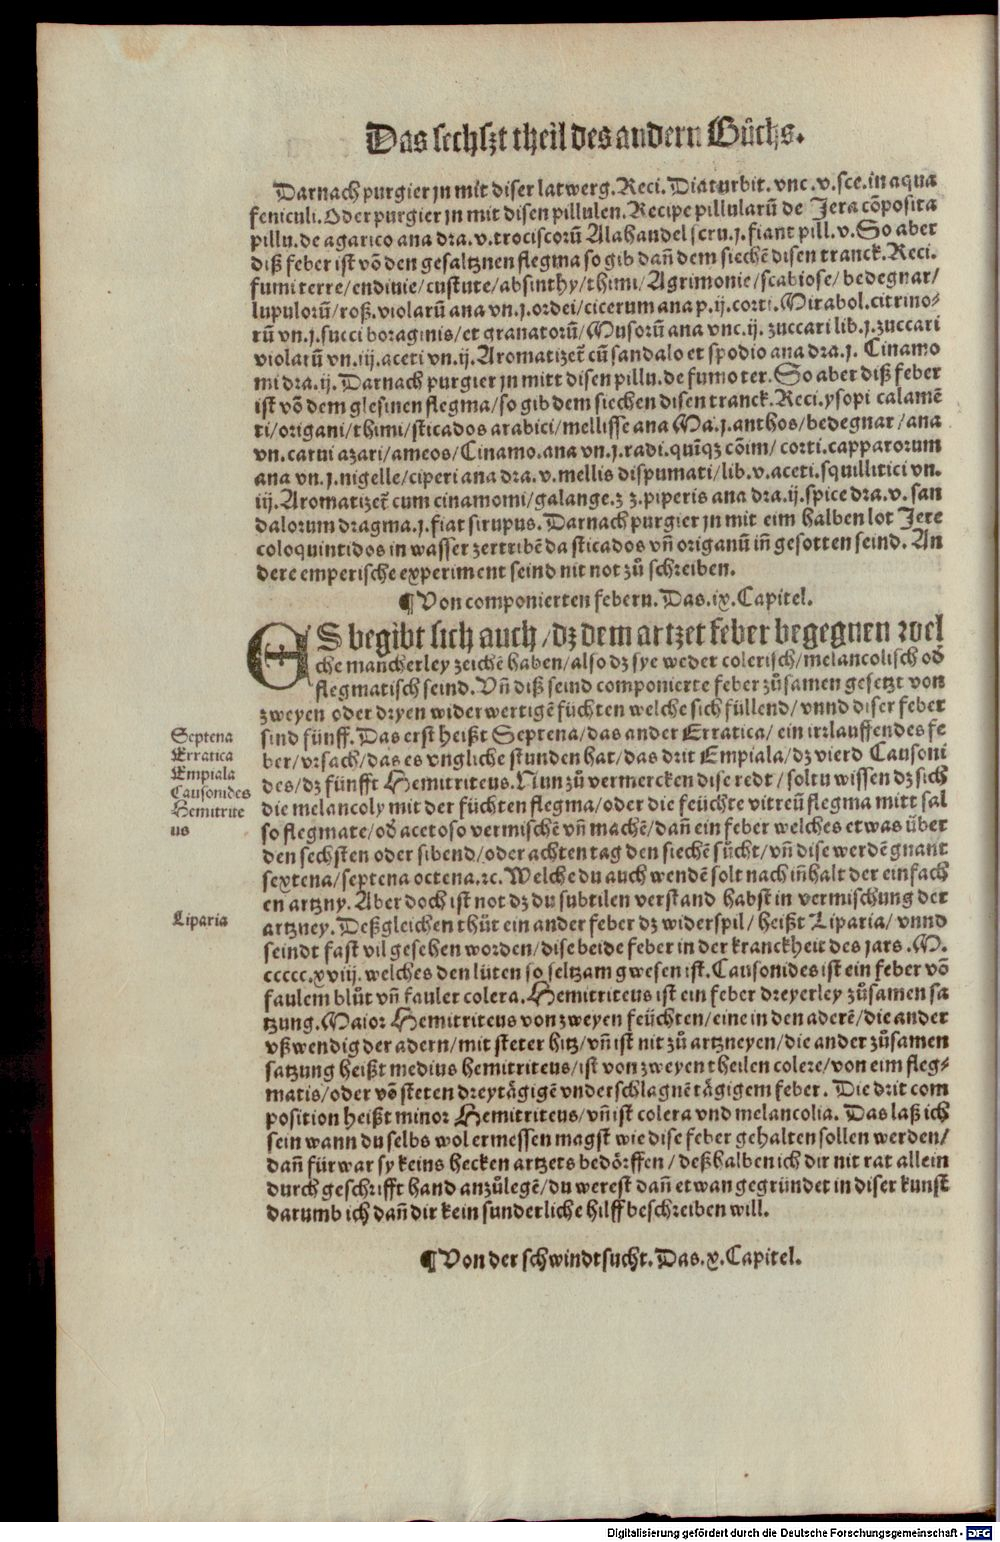 Das sechszt theil des andern Bůchs.
Darnach purgier jn mit diser latwerg. Reci. Diaturbit. vnc. v. sce. in aqua
feniculi. Oder purgier jn mit disen pillulen. Recipe pillularū de Jera cōposita
pillu. de agarico ana dra. v. trociscorū Alahandel scru. j. fiant pill. v. So aber
diß feber ist vō den gesaltznen flegma so gib dañ dem siechē disen tranck. Reci.
fumiterre/endiuie/custute/absinthy/thimi/Agrimonie/scabiose/bedegnar/
lupulorū/roß. violarū ana vn. j. ordei/cicerum ana p. ij. corti. Mirabol. citrino-
rū vn. j. succi boraginis/et granatorū/Musorū ana vnc. ij. zuccari lib. j. zuccari
violarū vn. iij. aceti vn. ij. Aromatizet̄ cū sandalo et spodio ana dra. j. Cinamo
mi dra. ij. Darnach purgier jn mitt disen pillu. de fumo ter. So aber diß feber
ist vō dem glesinen flegma/so gib dem siechen disen tranck. Reci. ysopi calamē
ti/origani/thimi/sticados arabici/mellisse ana Ma. j. anthos/bedegnar/ana
vn. carui azari/ameos/Cinamo. ana vn. j. radi. quīqz cōim/corti. capparorum
ana vn. j. nigelle/ciperi ana dra. v. mellis dispumati/lib. v. aceti. squillitici vn.
iij. Aromatizet̄ cum cinamomi/galange. z z. piperis ana dra. ij. spice dra. v. san
dalorum dragma. j. fiat sirupus. Darnach purgier jn mit eim halben lot Jere
coloquintidos in wasser zertribē da sticados vñ origanū iñ gesotten seind. An
dere emperische experiment seind nit not zů schreiben.
¶ Von componierten febern. Das. ix. Capitel.
ES begibt sich auch/dz dem artzet feber begegnen wel
che mancherley zeichē haben/also dz sye weder colerisch/melancolisch od̄
flegmatisch seind. Vñ diß seind componierte feber zůsamen gesetzt von
zweyen oder dryen widerwertigē füchten welche sich füllend/vnnd diser feber
sind fünff. Das erst heißt Septena/das ander Erratica/ein irrlauffendes fe
ber/vrsach/das es vngliche stunden hat/das drit Empiala/dz vierd Causoni
des/dz fünfft Hemitriteus. Nun zů vermercken dise redt/soltu wissen dz sich
die melancoly mit der füchten flegma/oder die feüchte vitreū flegma mitt sal
so flegmate/od̄ acetoso vermischē vñ machē/dañ ein feber welches etwas über
den sechsten oder sibend/oder achten tag den siechē sücht/vñ dise werdē gnant
sextena/septena octena. ꝛc. Welche du auch wendē solt nach iñhalt der einfach
en artzny. Aber doch ist not dz du subtilen verstand habst in vermischung der
artzney. Deßgleichen thůt ein ander feber dz widerspil/heißt Liparia/vnnd
seindt fast vil gesehen worden/dise beide feber in der kranckheit des jars. M.
ccccc. xviij. welches den lüten so seltzam gwesen ist. Causonides ist ein feber vō
faulem blůt vñ fauler colera. Hemitriteus ist ein feber dreyerley zůsamen sa
tzung. Maior Hemitriteus von zweyen feüchten/eine in den aderē/die ander
vßwendig der adern/mit steter hitz/vñ ist nit zů artzneyen/die ander zůsamen
satzung heißt medius hemitriteus/ist von zweyen theilen colere/von eim fleg-
matis/oder vō steten dreytägigē vnderschlagnē tägigem feber. Die drit com
position heißt minor Hemitriteus/vñ ist colera vnd melancolia. Das laß ich
sein wann du selbs wol ermessen magst wie dise feber gehalten sollen werden/
dañ fürwar sy keins hecken artzets bedörffen/deßhalben ich dir nit rat allein
durch geschrifft hand anzůlegē/du werest dañ etwan gegründet in diser kunst
darumb ich dañ dir kein sunderliche hilff beschreiben will.
Septena
Erratica
Empiala
Causonides
Hemitrite
us
Liparia
¶ Von der schwindtsucht. Das. x. Capitel.
Digitalisierung gefördert durch die Deutsche Forschungsgemeinschaft - DFG